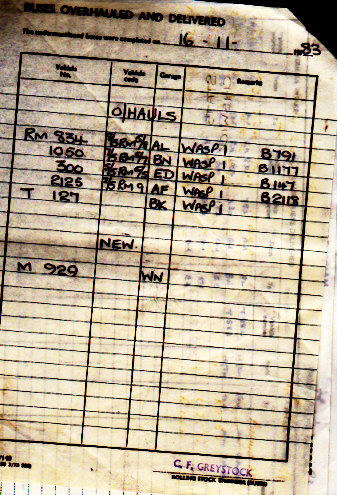 BUSES OVERHAULED AND DELIVERED
The undermentioned buses were completed on 16 - 11 - 1983
Vehicle No. Vehicle code Garage Remarks
O/HAULS
RM 834 AL WASP 1 B791
1050 BN WASP 1 B1177
300 ED WASP 1 B147
2125 AF WASP 1 B2118
T 127 BK WASP 1
NEW.
M 929 WN
C. F. GREYSTOCK
ROLLING STOCK ENGINEER (BUSES)